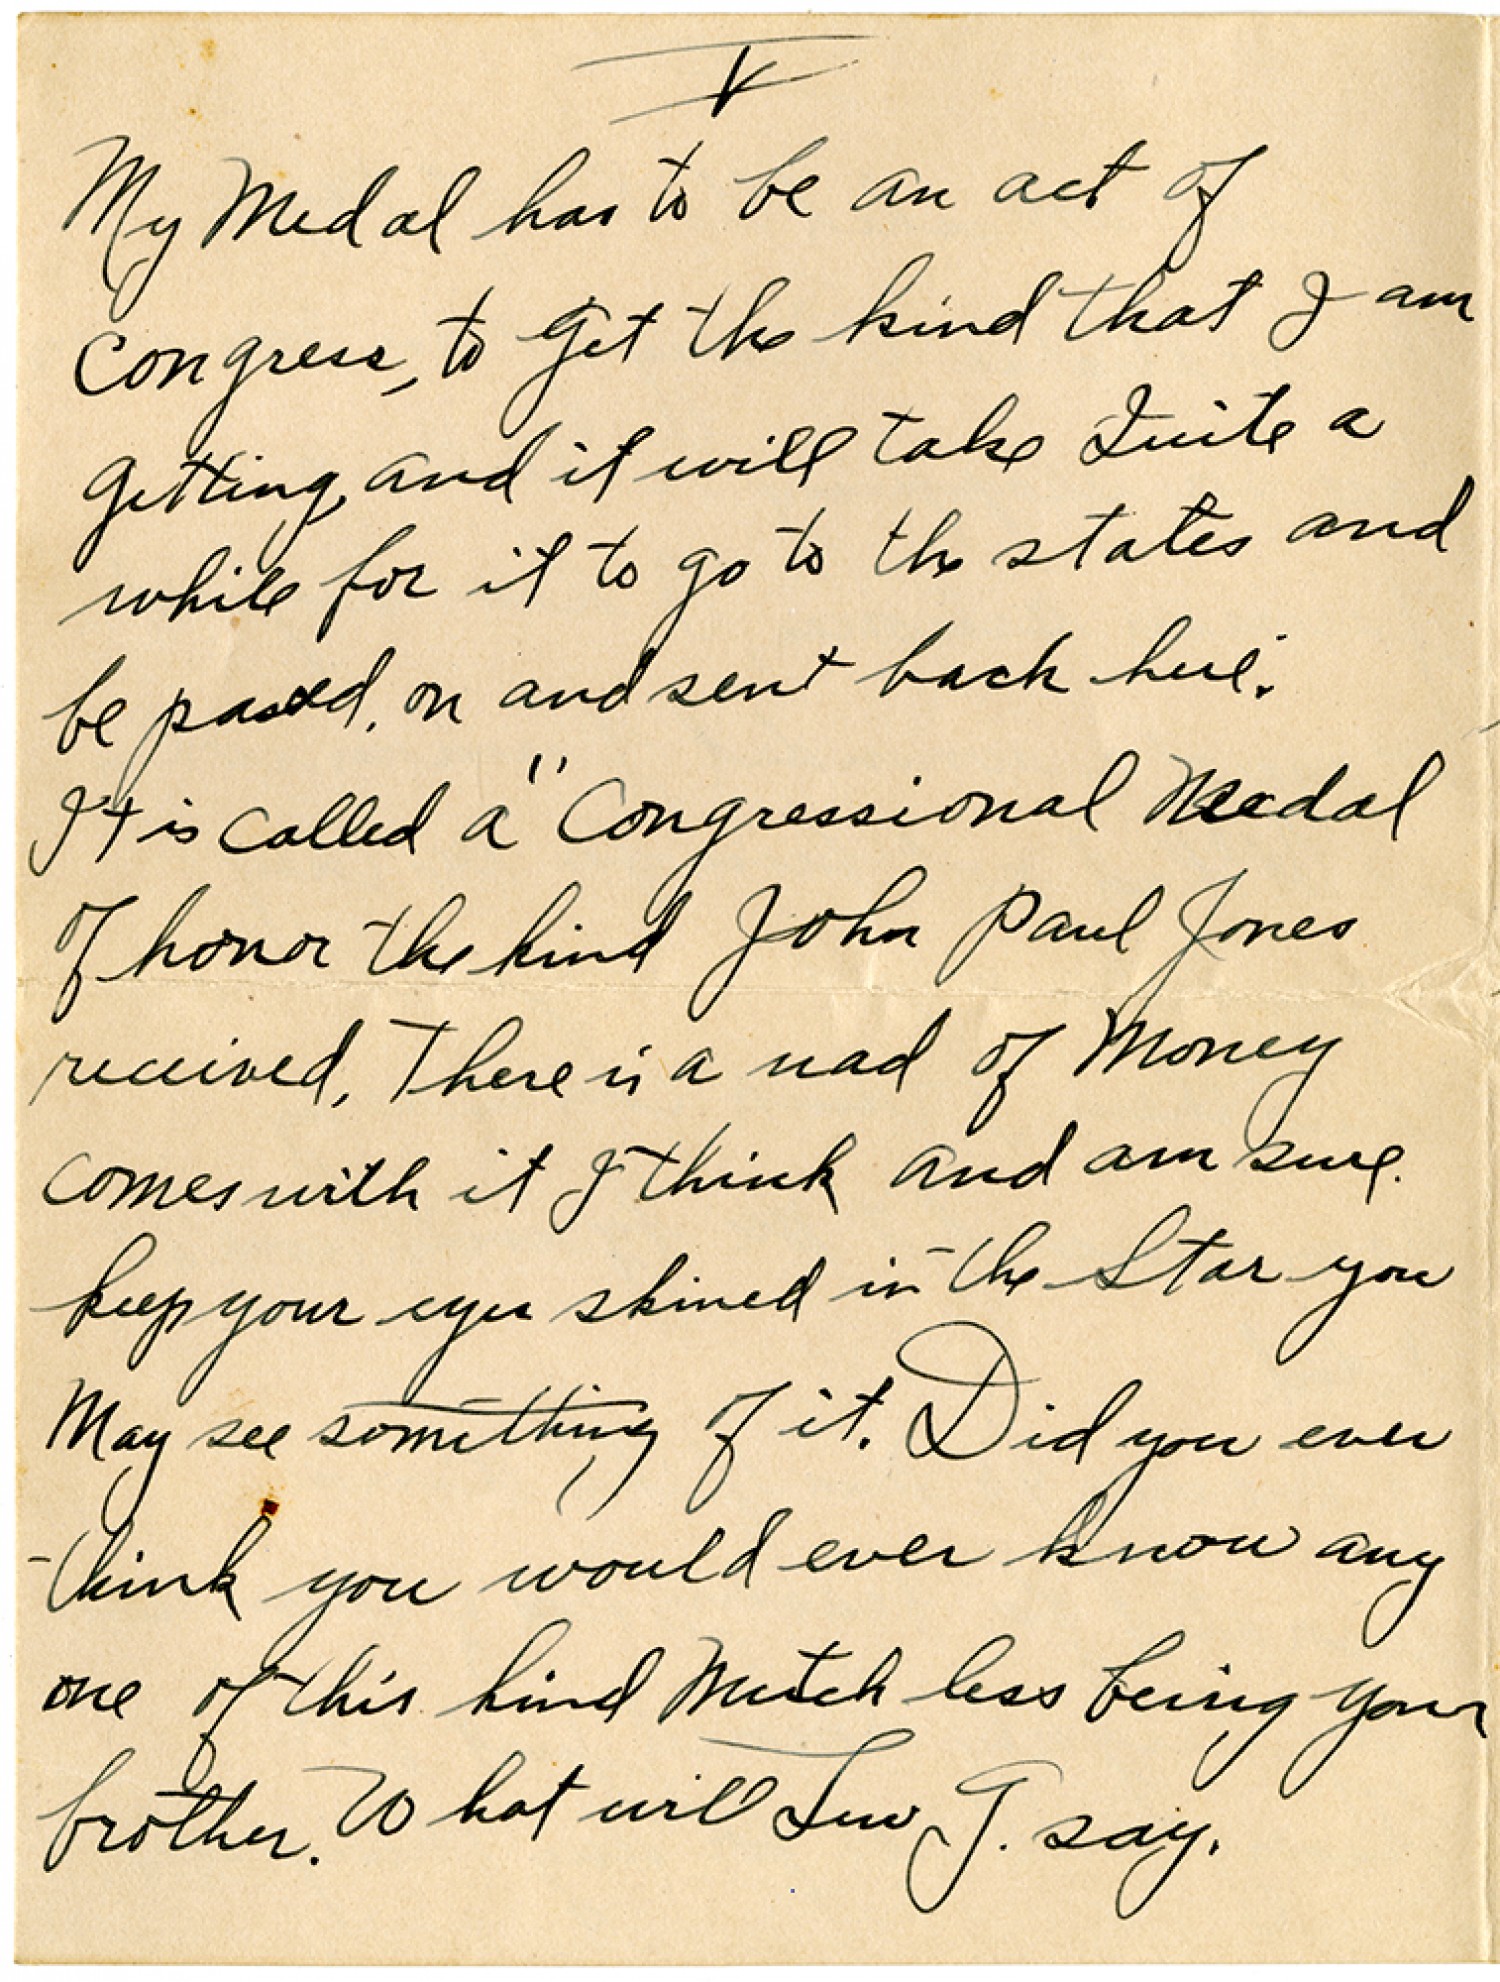 V
My Medal has to be an act of
Congress, to get the kind that I am
getting, and it will take Quite a
while for it to go to the states and
be passed, on and sent back here.
It is called a "Congressional Medal
of honor the kind John Paul Jones
received, There is a wad of Money
comes with it I think and am sure.
keep your eyes skined in the Star you
May see something of it. Did you ever
think you would ever know any
one of this kind Mutch less being your
brother. What will Lew G. say.